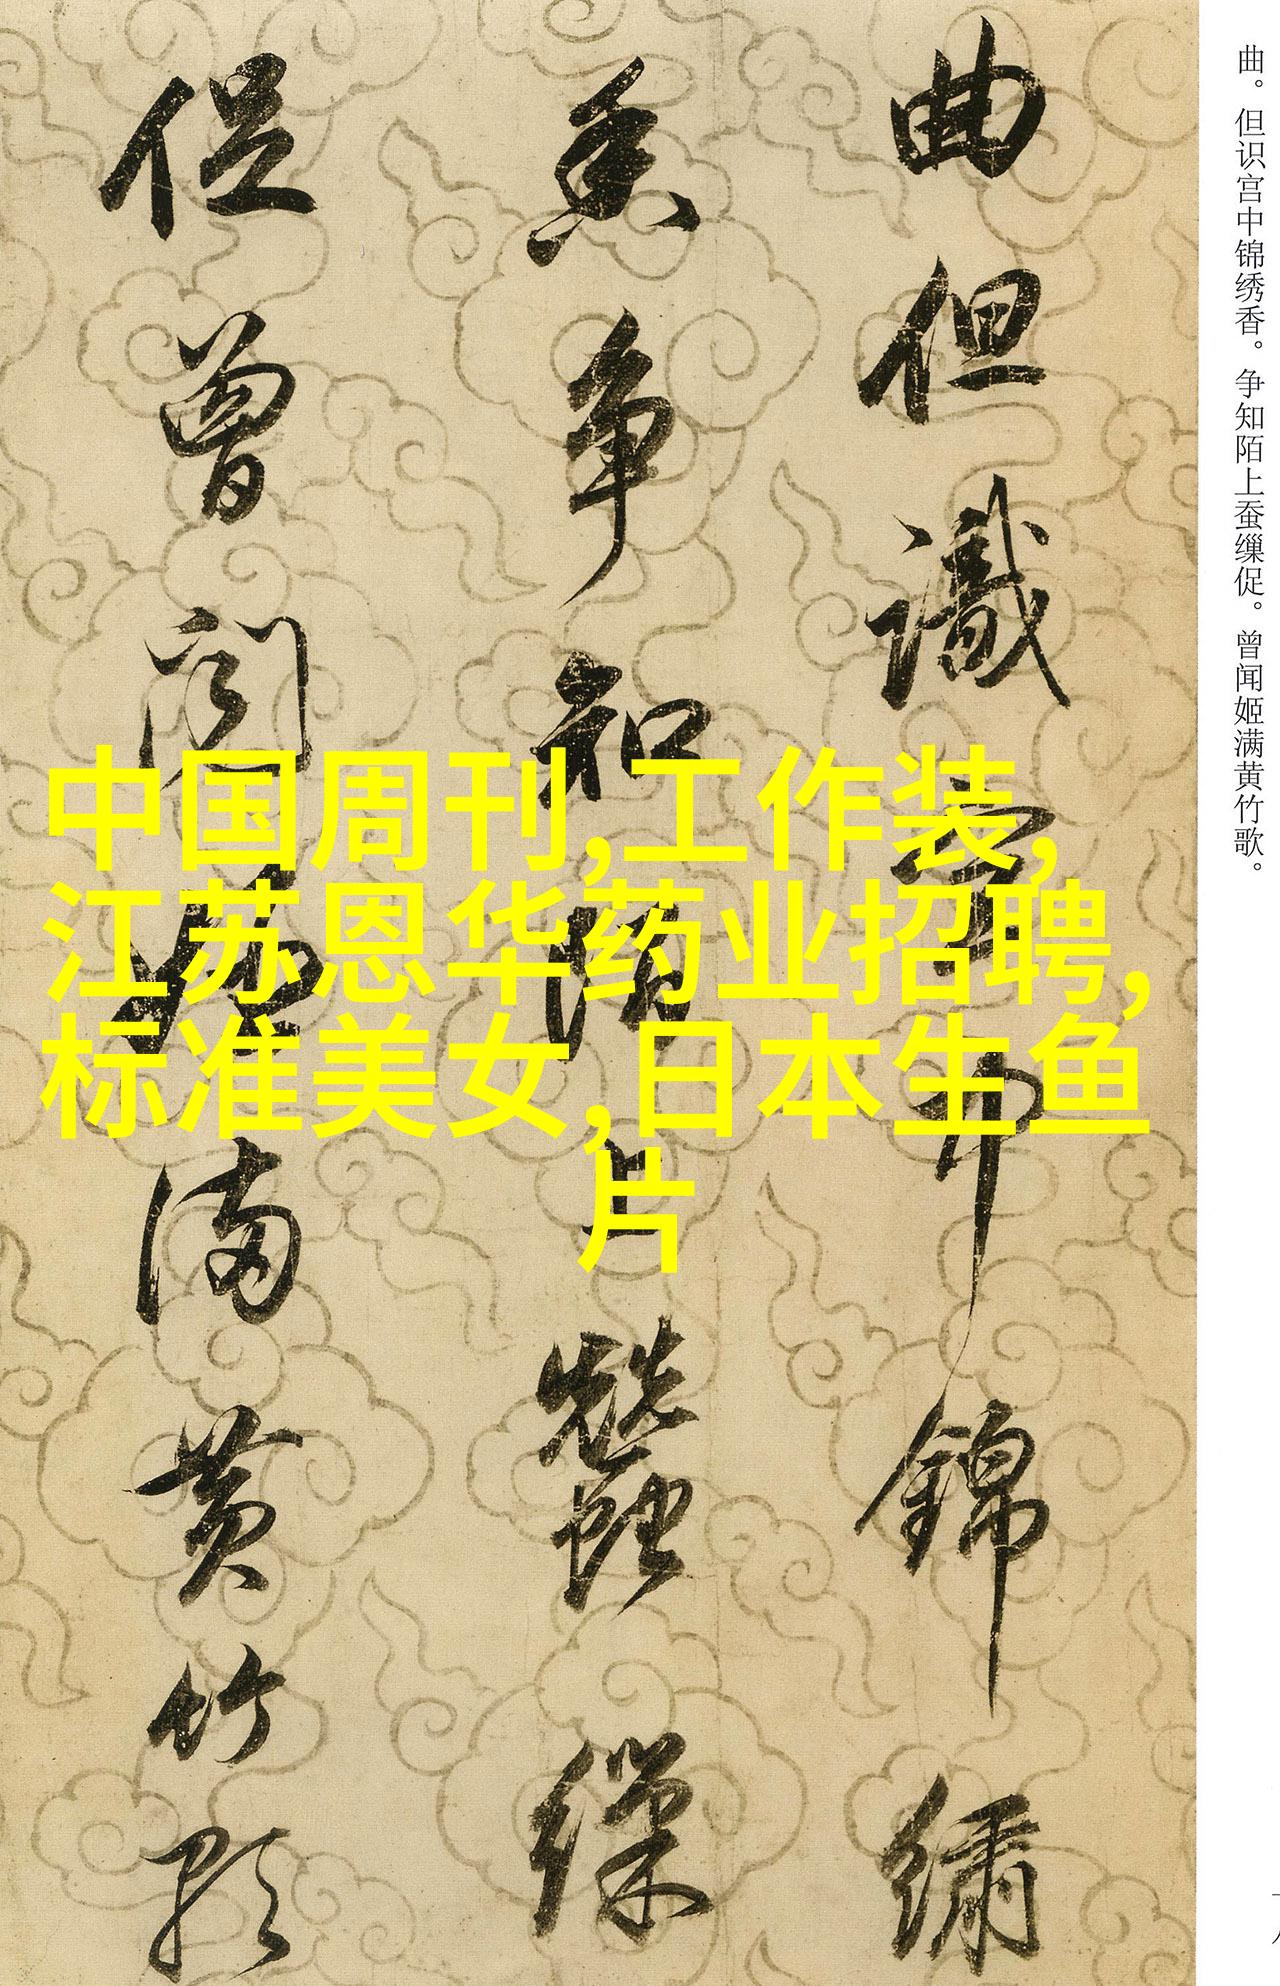 曲。但识宫中锦绣香。争知陌上蚕缫促。曾闻姬满黄竹歌。
曲但識宫中錦繡
香争知陌上蠶繅
促曾闻姬满黄竹歌
中国周刊,工作装,
江苏恩华药业招聘,
标准美女,日本生鱼
片